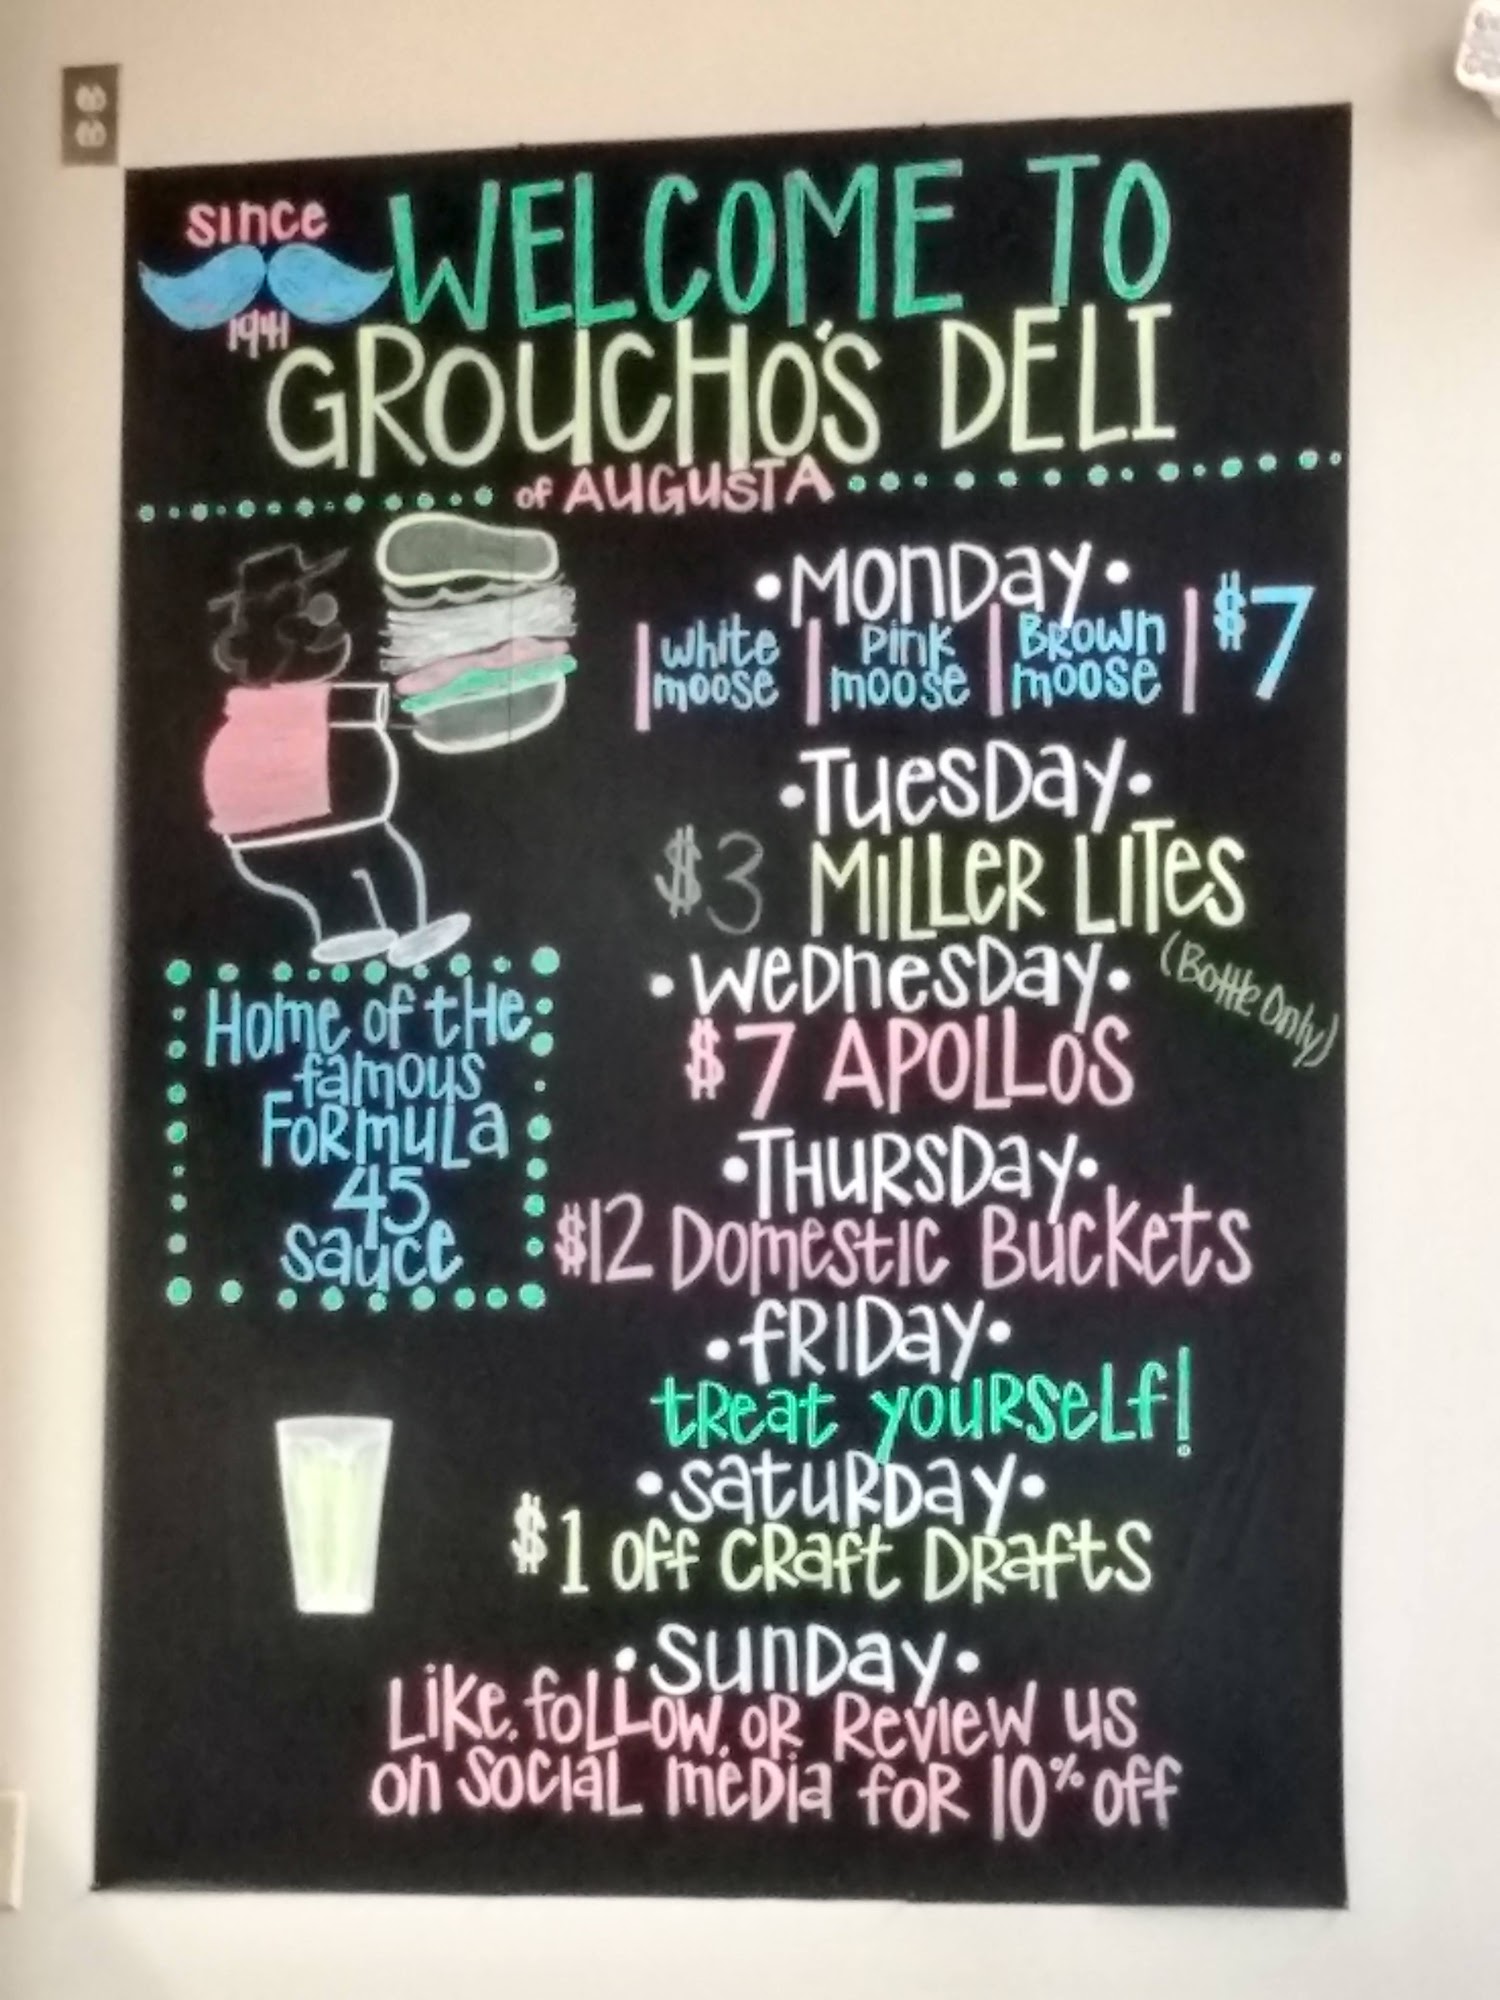 since
1941
WELCOME TO
GROUCHO'S DELI
of AUGUSTA
•Monday•
White moose | Pink moose | Brown moose | $7
•Tuesday•
$3 MILLER LITES
(Bottle Only)
•Wednesday•
$7 APOLLOS
•THURSDay•
$12 Domestic Buckets
•fRIDay•
treat yourself!
•Saturday•
$1 off craft Drafts
•Sunday•
Like, follow, or Review us
on social media for 10% off
Home of the
famous
Formula
45
sauce